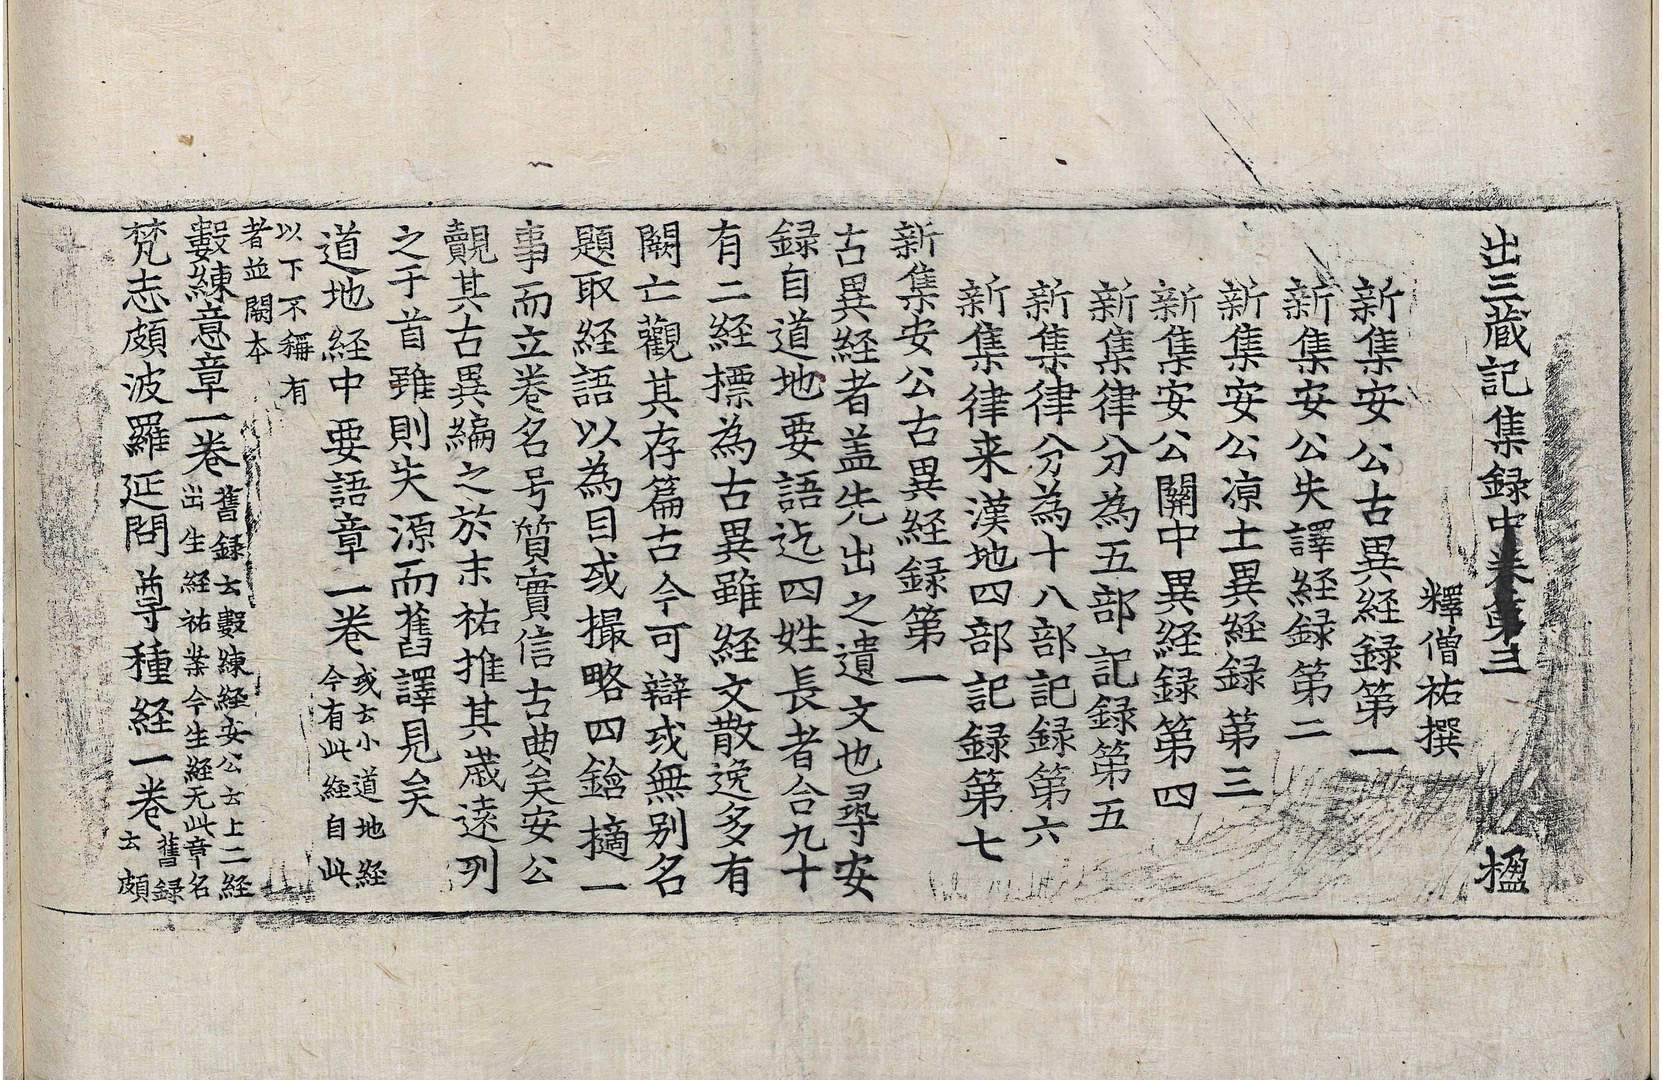 出三蔵記集録中卷第三　楹
釋僧祐撰
新集安公古異経録第一
新集安公失譯経録第二
新集安公凉土異経録第三
新集安公關中異経録第四
新集律分為五部記録第五
新集律分為十八部記録第六
新集律来漢地四部記録第七
新集安公古異経録第一
古異経者盖先出之遺文也尋安
録自道地要語迄四姓長者合九十
有二経標為古異雖経文散逸多有
闕亡觀其存篇古今可辯或無別名
題取経語以為目或撮略四鋡摘一
事而立卷名号質實信古典矣安公
覿其古異編之於末祐推其歳遠列
之于首雖則失源而舊譯見矣
道地経中要語章一卷或云小道地経
今有此経自此
以下不稱有
者並闕本
數練意章一卷舊録云數練経安公云上二経
出生経祐案今生経无此章名
梵志頗波羅延問尊種経一卷舊録
云頗